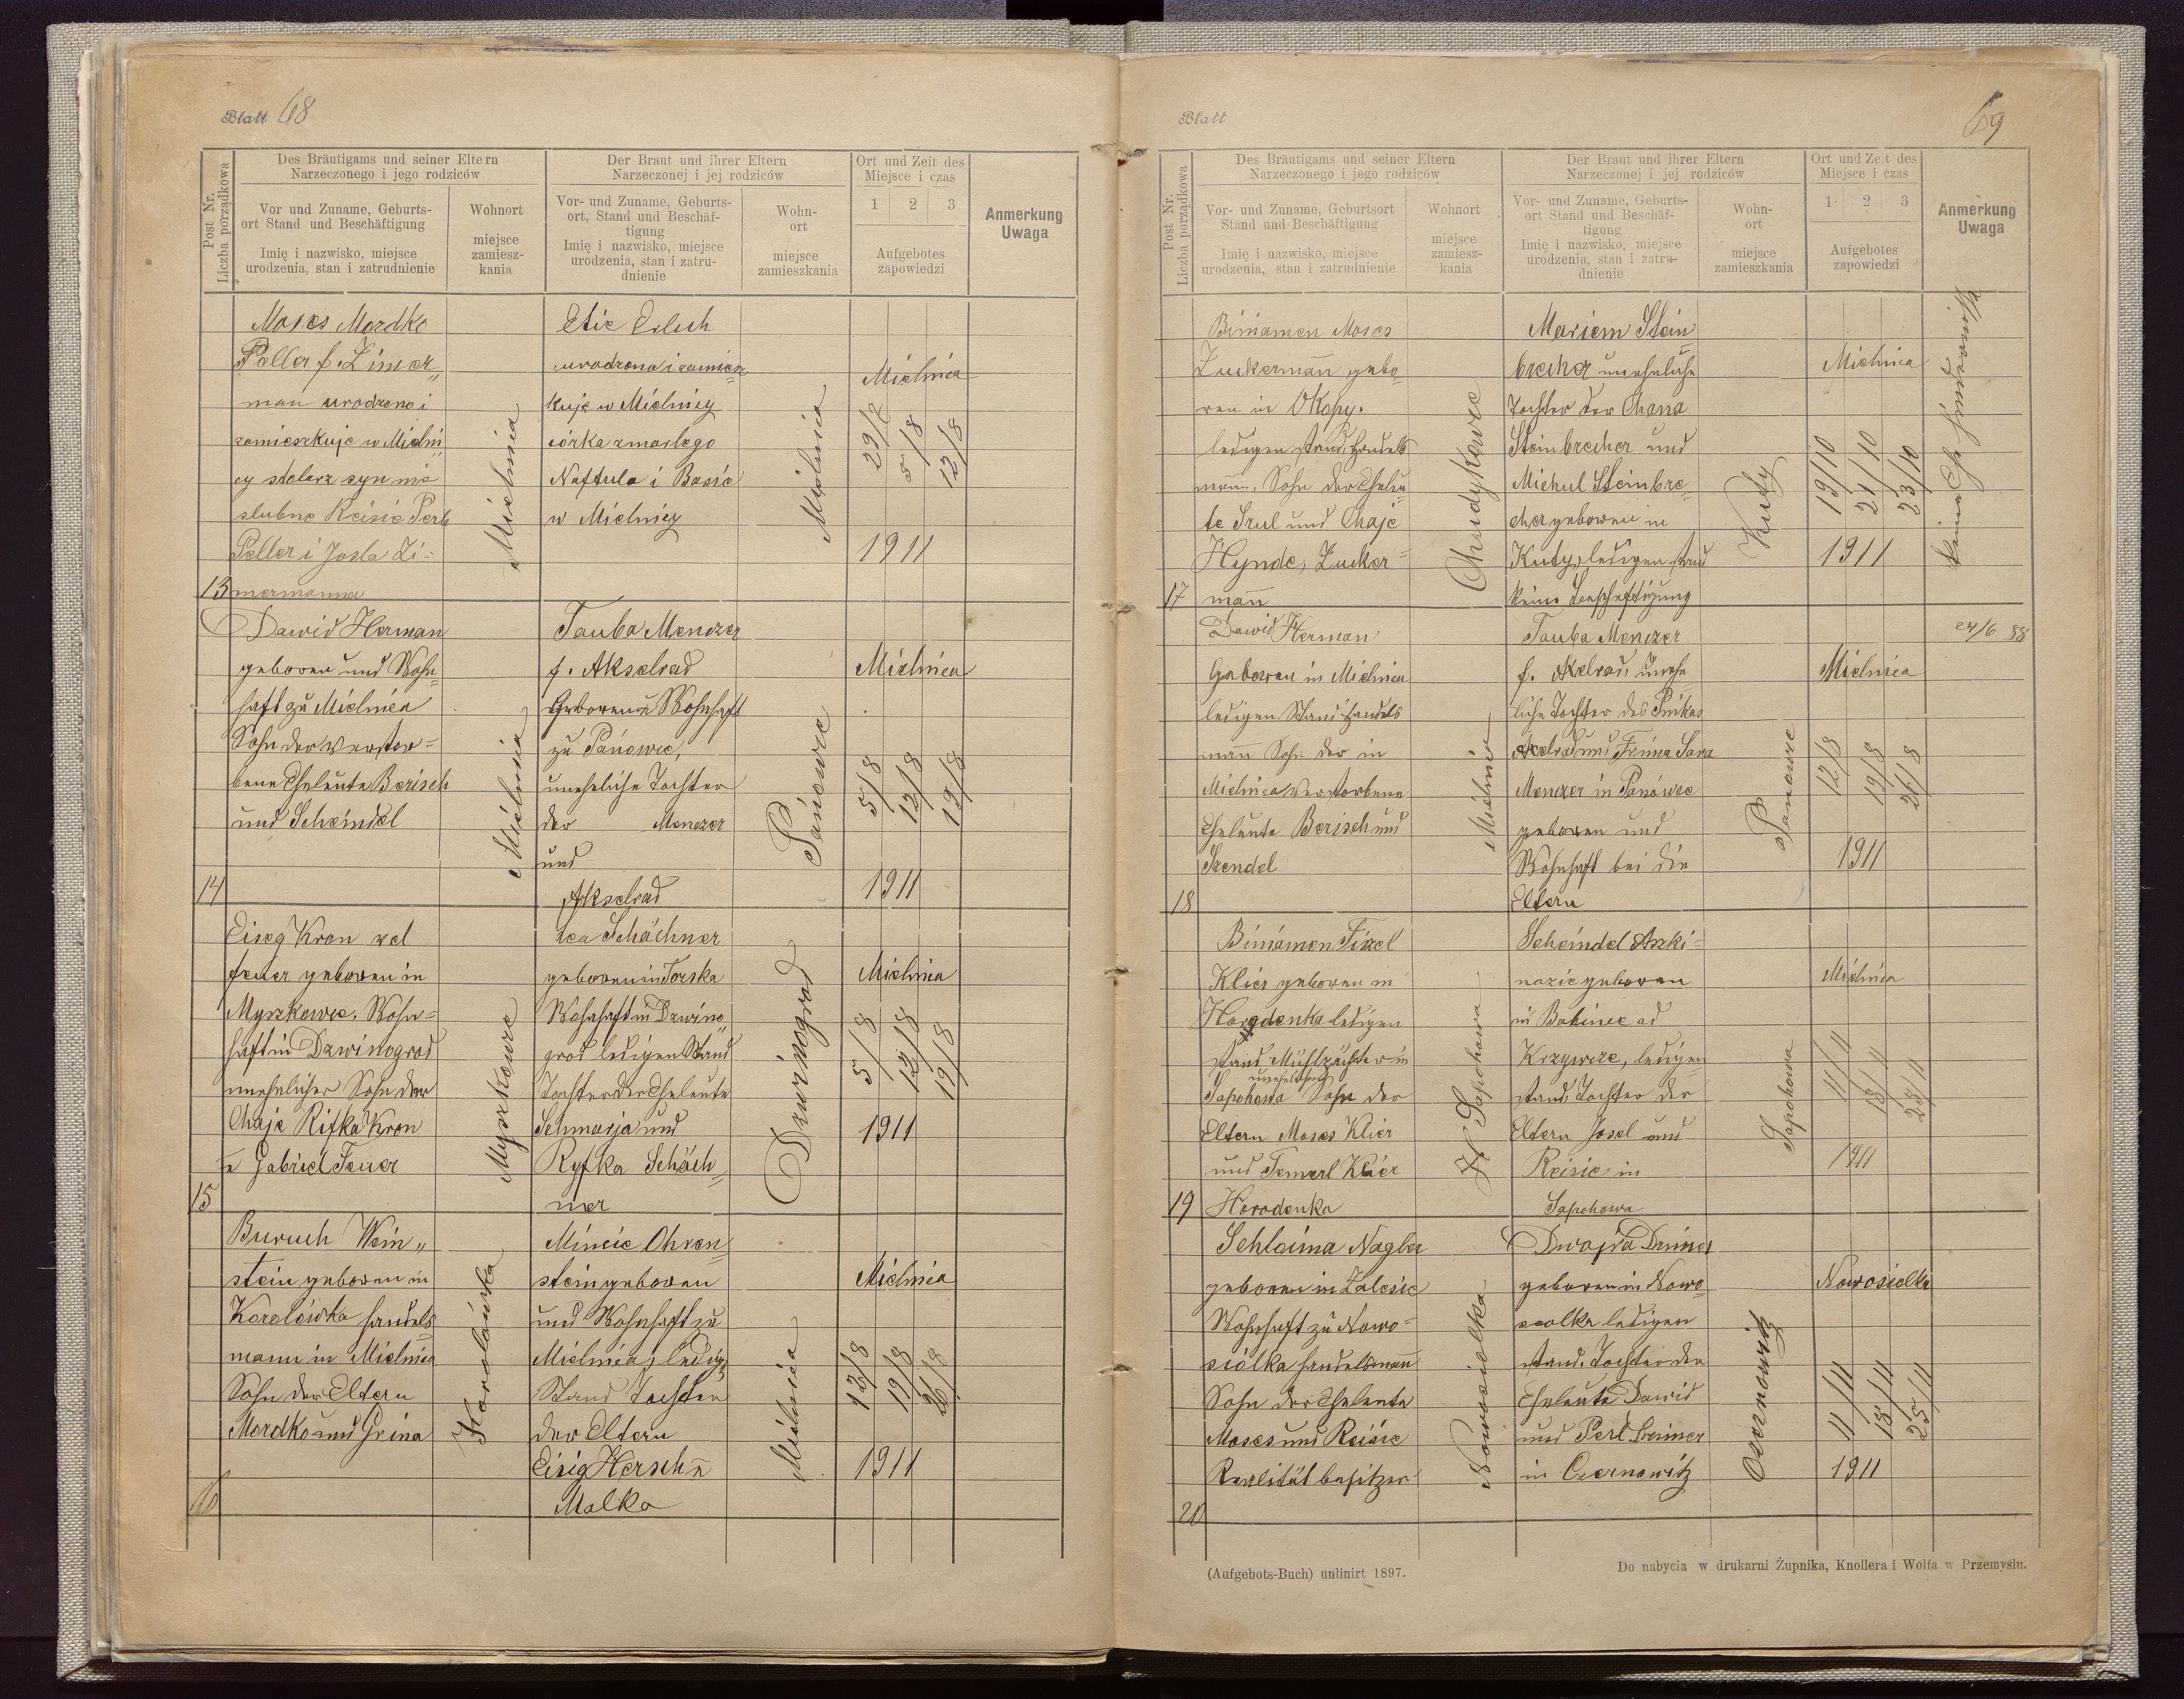 Blatt 68
Post Nr.
Liczba porządkowa
Des Bräutigams und seiner Eltern
Narzeczonego i jego rodziców
Der Braut und ihrer Eltern
Narzeczonej i jej rodziców
Ort und Zeit des
Miejsce i czas
Vor und Zuname, Geburts-
ort Stand und Beschäftigung
Imię i nazwisko, miejsce
urodzenia, stan i zatrudnienie
Wohnort
miejsce
zamiesz-
kania
Vor- und Zuname, Geburts-
ort, Stand und Beschäf-
tigung
Imię i nazwisko, miejsce
urodzenia, stan i zatru-
dnienie
Wohn-
ort
miejsce
zamieszkania
1 2 3
Aufgebotes
zapowiedzi
Anmerkung
Uwaga
13
Moses Mordko
Peller f. Zimer„
man urodzono i
zamieszkuje w Mielni„
cy stolarz syn nie
slubne Reisie Perl
Peller i Josla Zi=
mermanna
Mielnica
Etie Erlich
urodzona i zamiesz=
kuje w Mielnicy
córka zmarlego
Naftula i Basie
w Mielnicy
Mielnica
Mielnica
29/7 5/8 12/8
1911
14
Dawid Herman
geboren und Wohn=
haft zu Mielnica
Sohn der verstor=
bene Eheleute Berisch
und Scheindel
Mielnica
Tauba Menczer
f. Akselrad
Geboren u Wohnhaft
zu Paniowce,
uneheliche Tochter
der Menczer
und
Akselrad
Paniowce
Mielnica
5/8 12/8 19/8
1911
15
Eiseg Kron vel
feuer geboren in
Myszkowce. Wohn=
haft in Dzwinogrod
unehelicher Sohn der
Chaje Rifka Kron
u Gabriel Feuer
Myszkowce
Lea Schächner
geboren in Torska
Wohnhaft in Dzwino
grod ledigen Stand
Tochter der Eheleute
Schmarja und
Ryfka Schäch„
ner
Dzwinograd
Mielnica
5/8 12/8 19/8
1911
16
Buruch Wein„
stein geboren in
Korolówka handels
mann in Mielnica
Sohn der Eltern
Mordko und Grina
Korolówka
Mincie Ohren
stein geboren
und Wohnhaft zu
Mielnica, ledig
Stand Tochter
der Eltern
Eisig Hersch u
Malka
Mielnica
Mielnica
12/8 19/8 26/8
1911
Blatt
69
Post Nr.
Liczba porządkowa
Des Bräutigams und seiner Eltern
Narzeczonego i jego rodziców
Der Braut und ihrer Eltern
Narzeczonej i jej rodziców
Ort und Zeit des
Miejsce i czas
Vor- und Zuname, Geburtsort
Stand und Beschäftigung
Imię i nazwisko, miejsce
urodzenia, stan i zatrudnienie
Wohnort
miejsce
zamiesz-
kania
Vor- und Zuname, Geburts-
ort Stand und Beschäf-
tigung
Imię i nazwisko, miejsce
urodzenia, stan i zatru-
dnienie
Wohn-
ort
miejsce
zamieszkania
1 2 3
Aufgebotes
zapowiedzi
Anmerkung
Uwaga
17
Biniamen Moses
Zuckermann gebo
ren in Okopy.
ledigen stand, Handels
mann. Sohn der Eheleu
te Srul und Chaje
Hynde, Zucker=
mann
Chudykowce
Mariem Stein
brecher uneheliche
Tochter der Chana
Steinbrecher und
Michul Steinbre=
cher geboren in
Kuty, ledigen stand
keine beschäftigung
Kuty
Mielnica
19/10 21/10 23/10
1911
18
Dawid Herman
Geboren in Mielnica
ledigen Stand Handels
mann Sohn der in
Mielnica verstorbene
Eheleute Berisch und
Szendel
Mielnica
Tauba Menczer
f. Axelrad, unehe
liche Tochter des Pinkas
Axelrad und Frima Sara
Menczer in Paniowce
geboren und
Wohnhaft bei die
Eltern
Paniowce
Mielnica
12/8 19/8 26/8
1911
24/6 88
19
Biniamen Fixel
Klier geboren in
Horodenka ledigen
stand Mühlpächter in
Sapohowa Sohn der
Eltern Moses Klier
und Temerl Klier
Horodenka
Sapohowa
Scheindel Aszki=
nazie geboren
in Babince ad
Krzywcze, ledigen
stand, Tochter der
Eltern Josel und
Reisie in
Sapohowa
Sapohowa
Mielnica
11/11 18/11 25/11
1911
20
Schloima Nagler
geboren in Zalesie
Wohnhaft zu Nowo=
siolka handelsmann
Sohn der Eheleute
Moses und Reisie
Realität besitzer
Nowosiolka
Dwojra Dreimer
geboren in Nowo=
siolka ledigen
stand. Tochter der
Eheleute Dawid
und Perl Dreimer
in Czernowitz
Czernowitz
Nowosiolka
11/11 18/11 25/11
1911
(Aufgebots-Buch) unlinirt 1897.
Do nabycia w drukarni Żupnika, Knollera i Wolfa w Przemyślu.